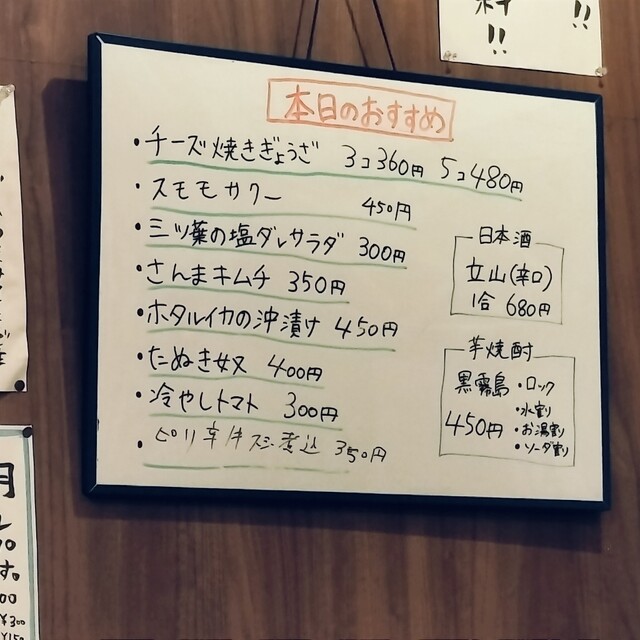 本日のおすすめ
・チーズ焼きぎょうざ 3コ360円 5コ480円
・スモモサワー 450円
・三ツ葉の塩ダレサラダ 300円
・さんまキムチ 350円
・ホタルイカの沖漬け 450円
・たぬき奴 400円
・冷やしトマト 300円
・ピリ辛牛スジ煮込 350円
日本酒
立山(辛口)
1合 680円
芋焼酎
黒霧島 ・ロック
・水割り
450円 ・お湯割り
・ソーダ割り
!!
!!
月
す。
00
¥300
¥150